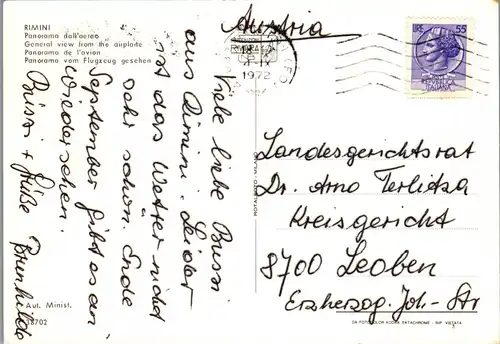 RIMINI
Panorama dall'aereo
General view from the airplane
Panorama de l'avion
Panorama vom Flugzeug gesehen
Austria
1972
LIRE 55
Viele liebe Bussi
aus Rimini. Leider
ist das Wetter nicht
sehr schön. Ende
September gibt es ein
Wiedersehen.
Bussi + Grüße Brunhilde
Landesgerichtsrat
Dr. Arno Terlitza
Kreisgericht
8700 Leoben
Erzherzog-Joh-Str
Aut. Minist.
38702
ROTALFOTO - MILANO
DA FOTOCOLOR KODAK EKTACHROME - RIP. VIETATA